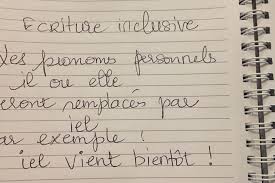 Ecriture inclusive
Les pronoms personnels
il ou elle
seront remplacés par
iel
par exemple !
iel vient bientôt !